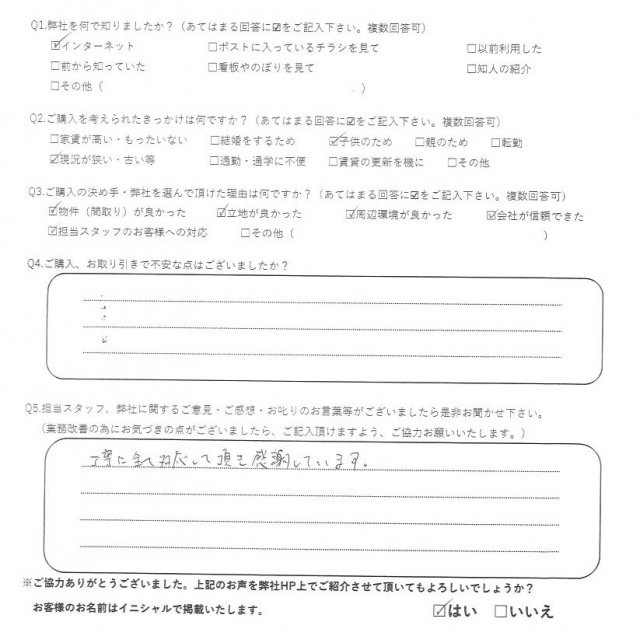 Q1.弊社を何で知りましたか?（あてはまる回答に☑をご記入下さい。複数回答可）
☑インターネット □ポストに入っているチラシを見て □以前利用した
□前から知っていた □看板やのぼりを見て □知人の紹介
□その他（ ）
Q2.ご購入を考えられたきっかけは何ですか?（あてはまる回答に☑をご記入下さい。複数回答可）
□家賃が高い・もったいない □結婚をするため ☑子供のため □親のため □転勤
☑現況が狭い・古い等 □通勤・通学に不便 □賃貸の更新を機に □その他
Q3.ご購入の決め手・弊社を選んで頂けた理由は何ですか?（あてはまる回答に☑をご記入下さい。複数回答可）
☑物件（間取り）が良かった ☑立地が良かった ☑周辺環境が良かった ☑会社が信頼できた
☑担当スタッフのお客様への対応 □その他（ ）
Q4.ご購入、お取り引きで不安な点はございましたか?
Q5.担当スタッフ、弊社に関するご意見・ご感想・お叱りのお言葉等がございましたら是非お聞かせ下さい。
（業務改善の為にお気づきの点がございましたら、ご記入頂けますよう、ご協力お願いいたします。）
丁寧に 対応して頂き感謝しています。
※ご協力ありがとうございました。上記のお声を弊社HP上でご紹介させて頂いてもよろしいでしょうか?
お客様のお名前はイニシャルで掲載いたします。 ☑はい □いいえ